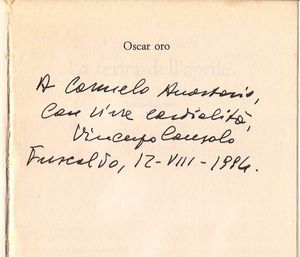 Oscar oro
A Carmelo Anastasio,
con vive cordialità,
Vincenzo Consolo
Fuscaldo, 12-VIII-1994.